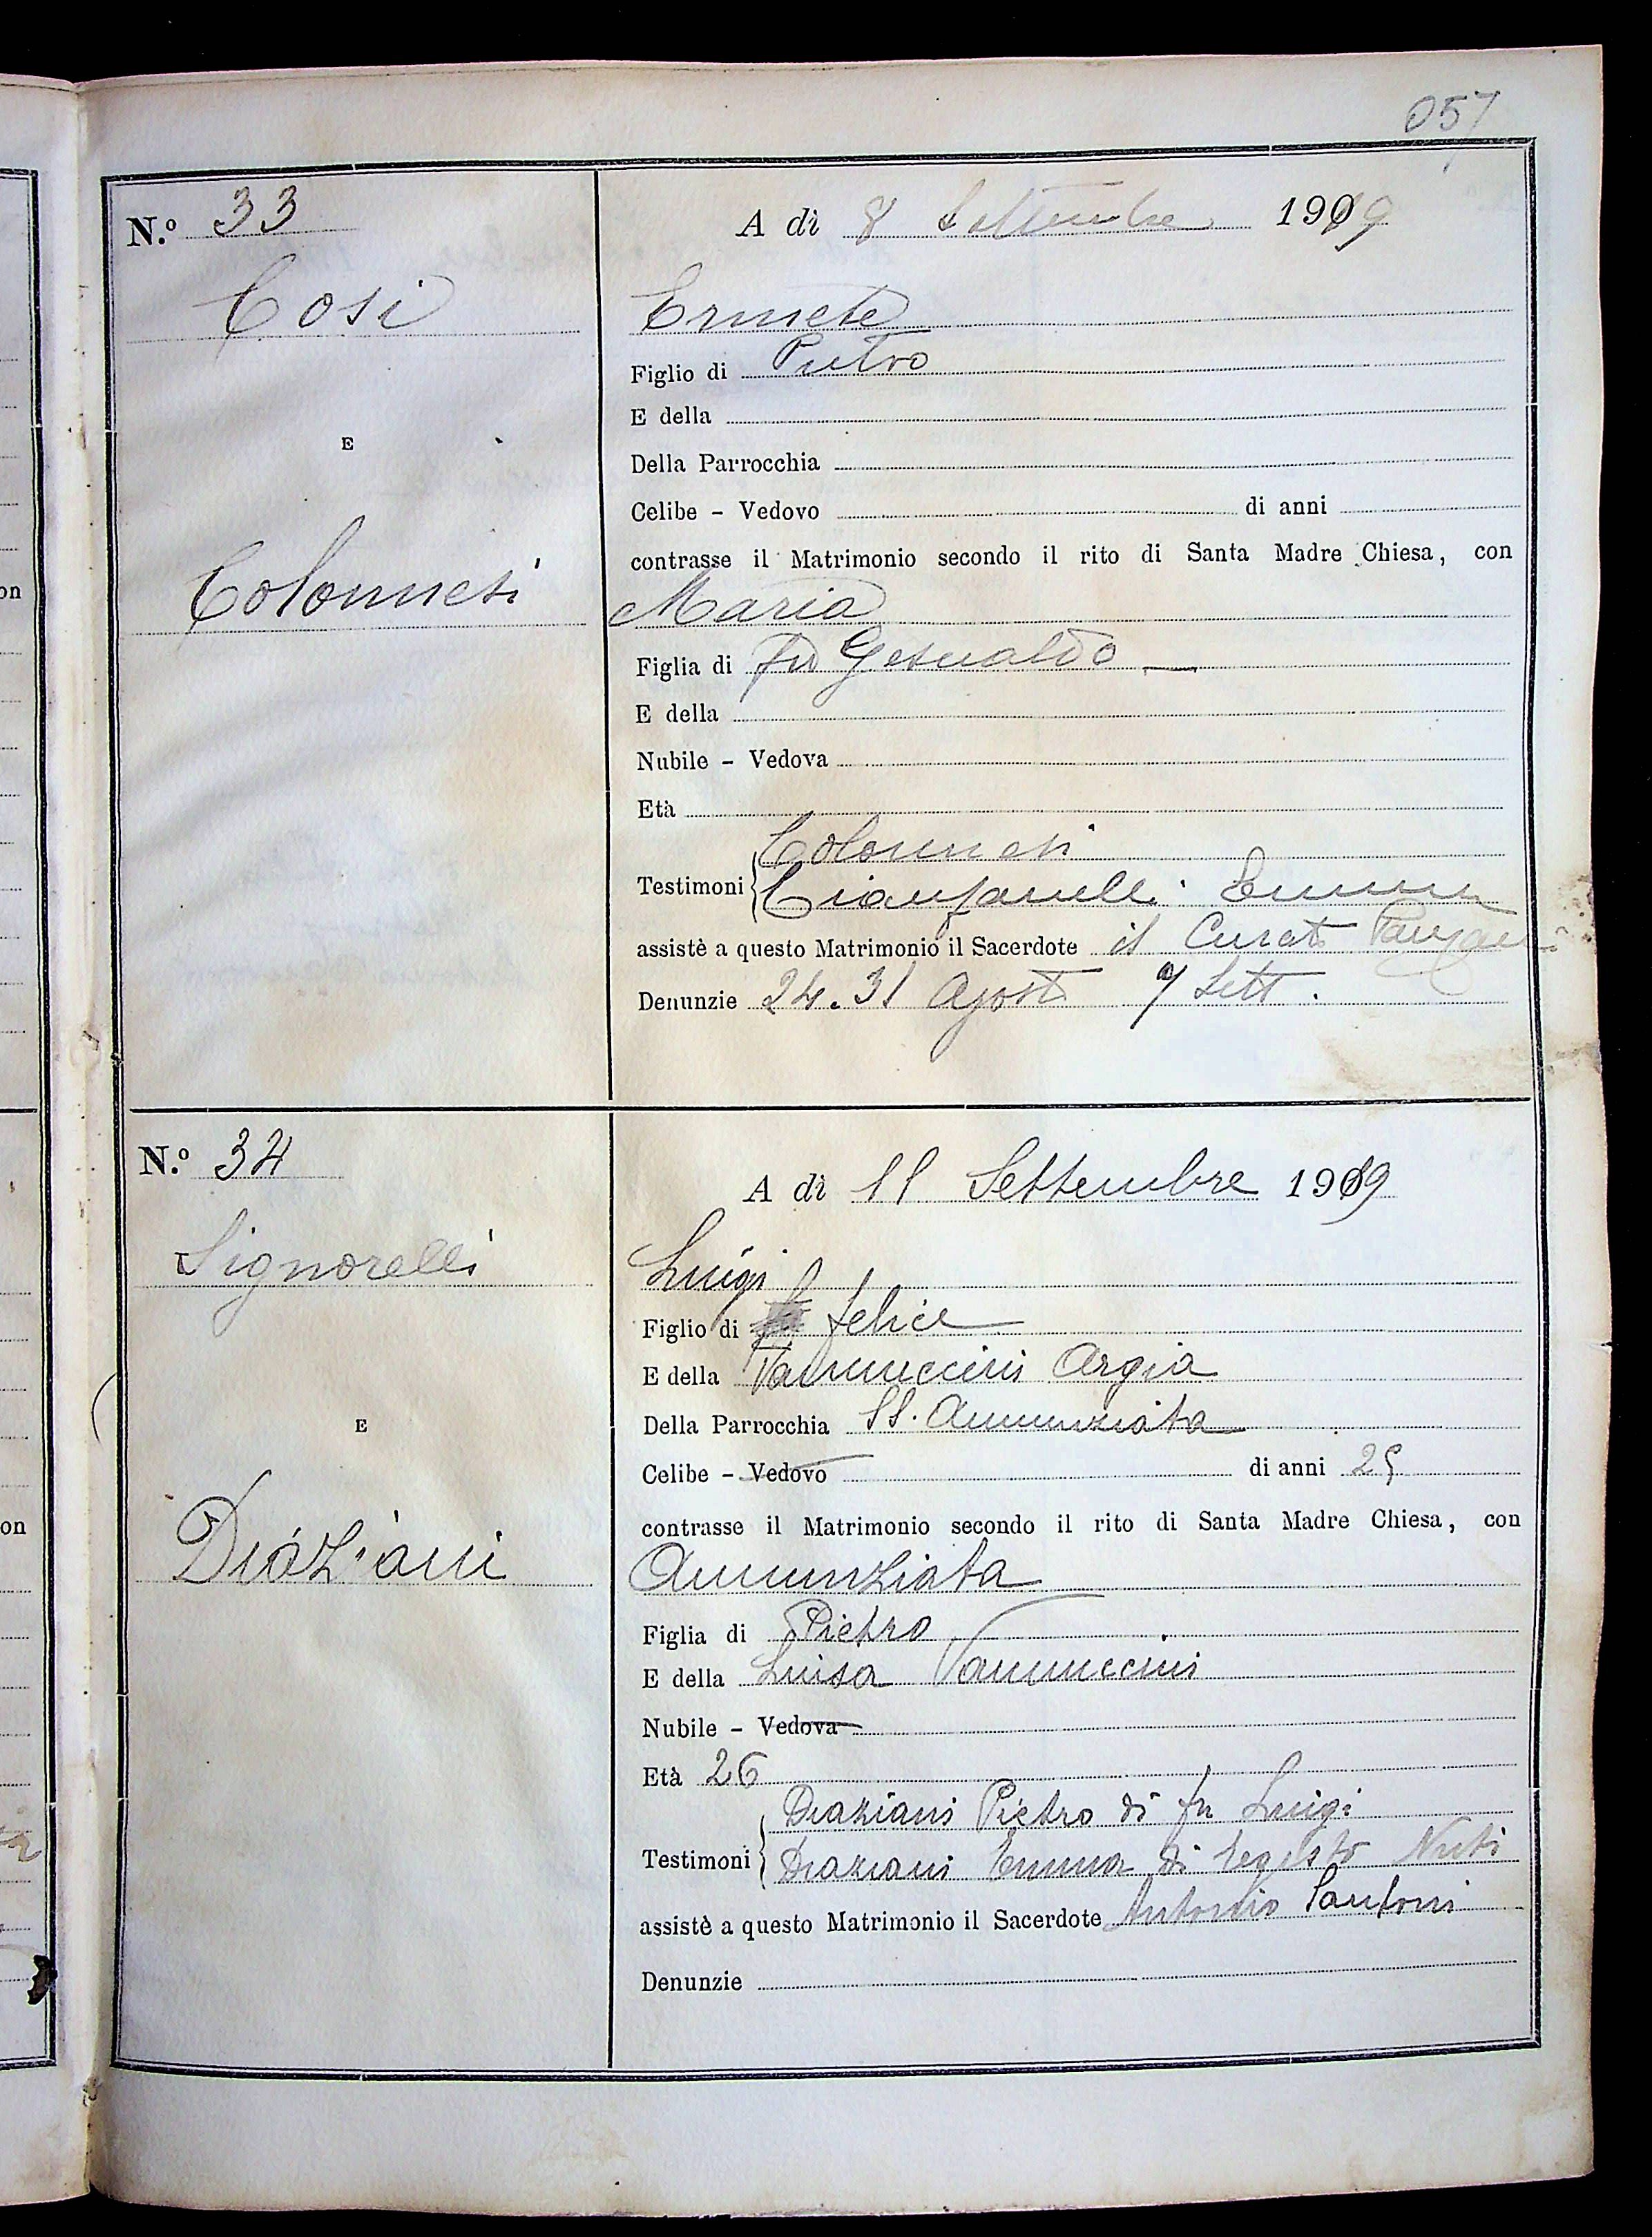 057
N.º 33
A dì 8 Settembre 1919
Cosi
Ermete
Figlio di Pietro
E della
E
Della Parrocchia
Celibe - Vedovo di anni
contrasse il Matrimonio secondo il rito di Santa Madre Chiesa, con
Colonnesi
Maria
Figlia di fu Gesualdo —
E della
Nubile - Vedova
Età
Colonnesi
Testimoni Cianfanelli
assistè a questo Matrimonio il Sacerdote il Curato
Denunzie 24. 31 Agosto 7 Sett.
N.º 34
A dì 11 Settembre 1919
Signorelli
Luigi
Figlio di felice
E della Vannuccini Argia
E
Della Parrocchia SS. Annunziata
Celibe - Vedovo di anni 25
contrasse il Matrimonio secondo il rito di Santa Madre Chiesa, con
Draziani
Annunziata
Figlia di Pietro
E della Luisa Vannuccini
Nubile - Vedova
Età 26
Draziani Pietro di fu Luigi
Testimoni Draziani Emma di Nuti
assistè a questo Matrimonio il Sacerdote Antonio Santoni
Denunzie
on
on